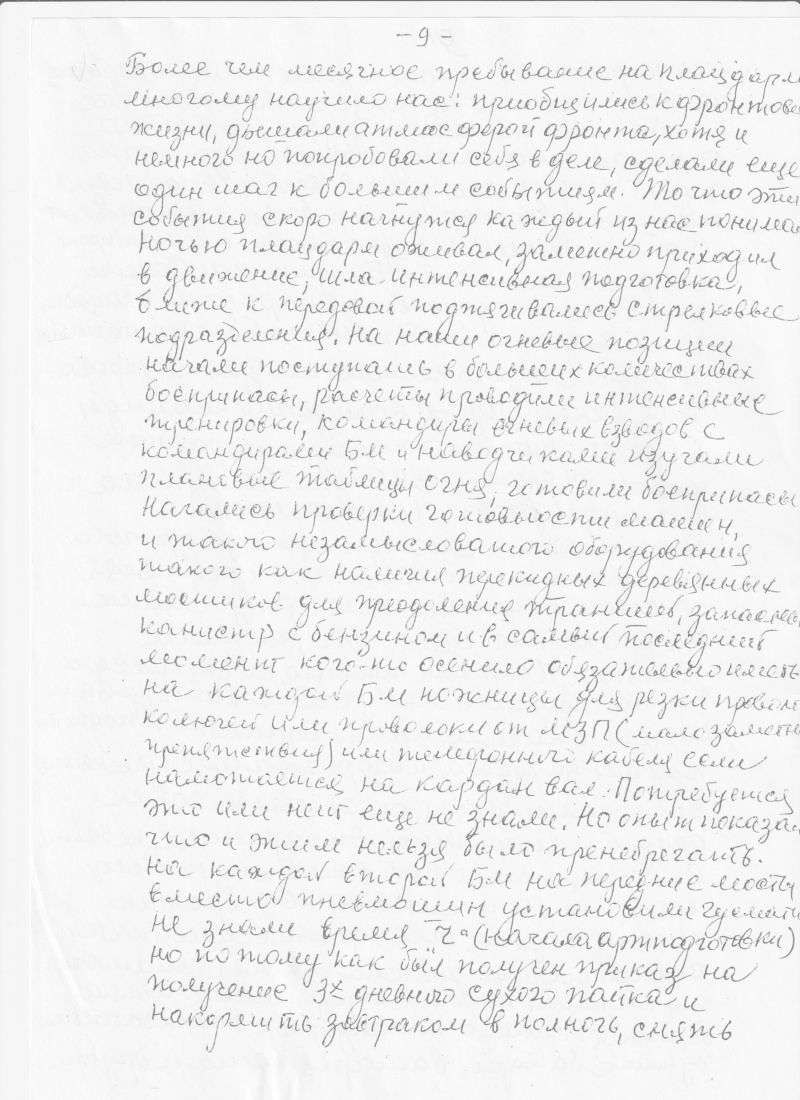 - 9 -
Более чем месячное пребывание на плацдарм
многому научило нас: приобщились к фронтово
жизни, дышали атмосферой фронта, хотя и
немного но попробовали себя в деле, сделали еще
один шаг к большим событиям. То что эти
события скоро начнутся каждый из нас понима
Ночью плацдарм оживал, заметно приходил
в движение, шла интенсивная подготовка,
ближе к передовой подтягивались стрелковые
подразделения. На наши огневые позиции
начали поступать в больших количествах
боеприпасы, расчеты проводили интенсивные
тренировки, командиры огневых взводов с
командирами БМ и наводчиками изучали
плановые таблицы огня, готовили боеприпасы
Начались проверки готовности машин,
и такого незамысловатого оборудования
такого как наличия перекидных деревянных
мостиков для преодоления траншей, запасных
канистр с бензином и в самый последний
момент кого-то осенило обязательно иметь
на каждой БМ ножницы для резки провол
колючей или проволоки от МЗП (мало заметн
препятствия) или телефонный кабеля если
намотается на кардан вал. Потребуется
это или нет еще не знали. Но опыт показал
что и этим нельзя было пренебрегать.
На каждой второй БМ на передние мосты
вместо пневмошин установили гусмати
Не знали время "Ч" (начала артподготовки)
но по тому как был получен приказ на
получение 3х дневного сухого пайка и
накормить завтраком в полночь, снять